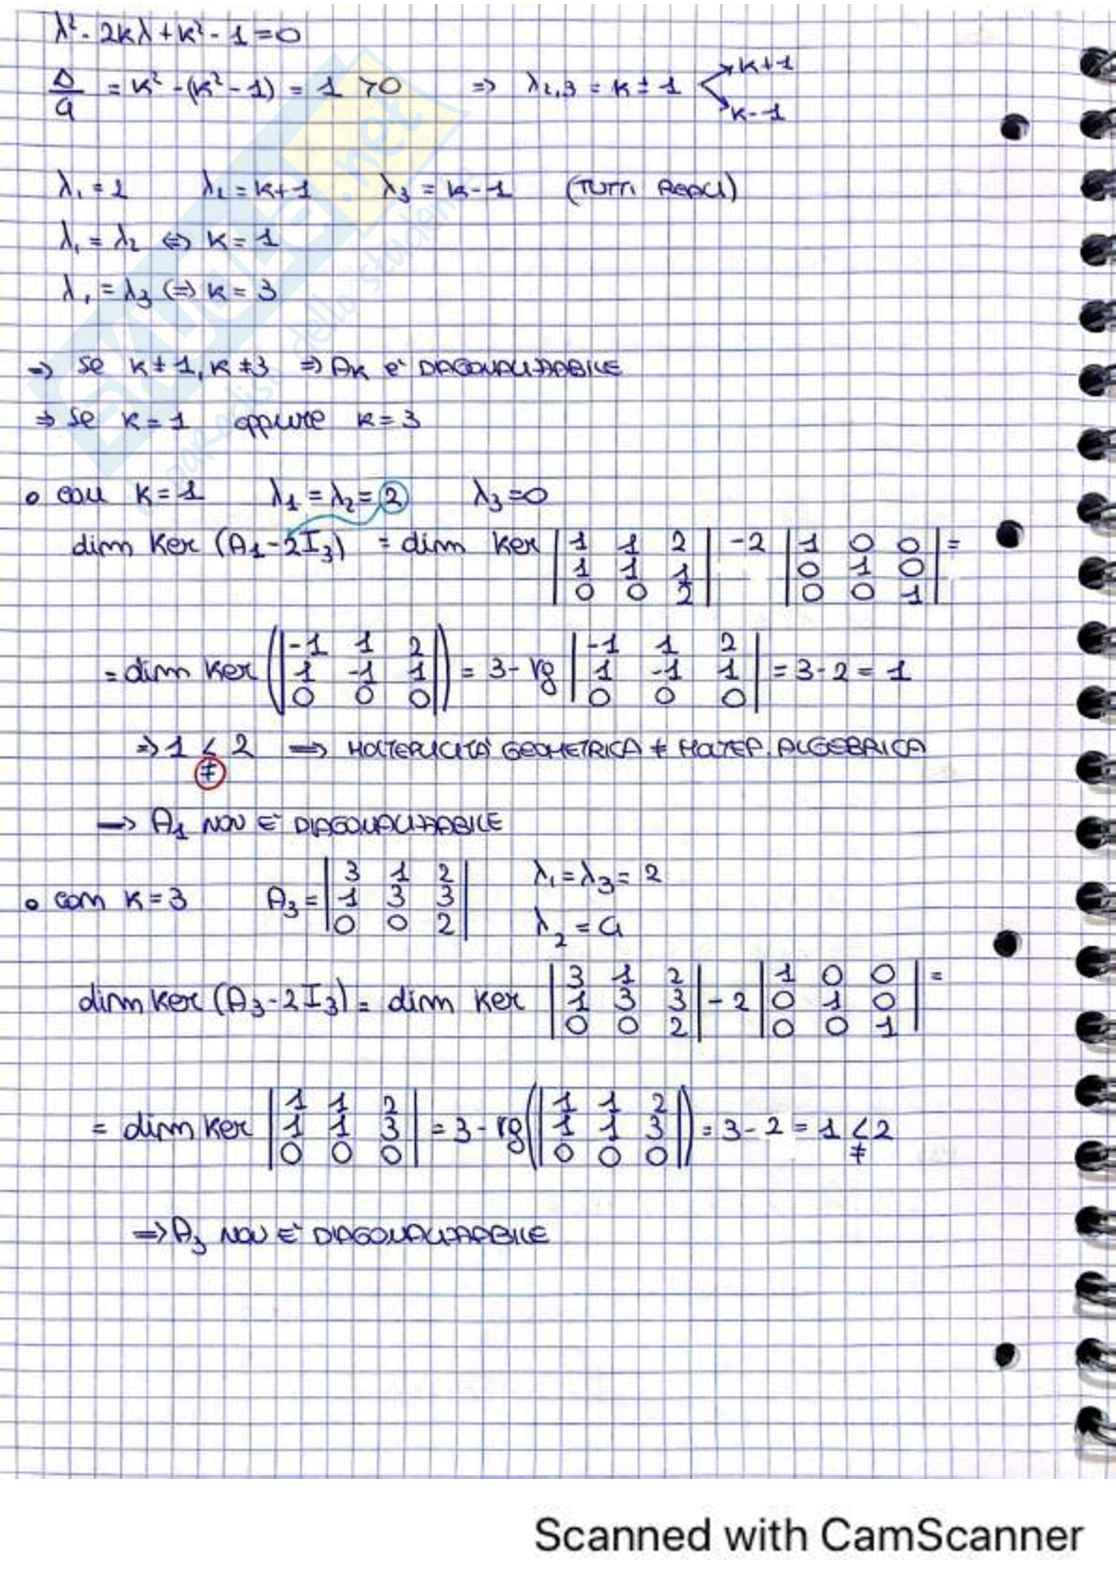 λ² - 2kλ + k² - 1 = 0
Δ/4 = k² - (k² - 1) = 1 > 0 ⇒ λ2,3 = k ± 1 k+1
k-1
λ₁ = 2 λ₂ = k+1 λ₃ = k-1 (TUTTI REALI)
λ₁ = λ₂ ⇔ k = 1
λ₁ = λ₃ ⇔ k = 3
⇒ Se k ≠ 1, k ≠ 3 ⇒ Ak è DIAGONALIZZABILE
⇒ Se k = 1 oppure k = 3
o con k = 1 λ₁ = λ₂ = 2 λ₃ = 0
dim Ker (A₁ - 2I₃) = dim Ker | 1 1 2 | - 2 | 1 0 0 | =
| 1 1 1 | | 0 1 0 |
| 0 0 2 | | 0 0 1 |
= dim Ker (| -1 1 2 |) = 3 - rg | -1 1 2 | = 3 - 2 = 1
| 1 -1 1 | | 1 -1 1 |
| 0 0 0 | | 0 0 0 |
⇒ 1 < 2 ⇒ MOLTEPLICITÀ GEOMETRICA ≠ MOLTEP. ALGEBRICA
≠
⇒ A₁ NON È DIAGONALIZZABILE
o con k = 3 A₃ = | 3 1 2 | λ₁ = λ₃ = 2
| 1 3 3 |
| 0 0 2 | λ₂ = 4
dim Ker (A₃ - 2I₃) = dim Ker | 3 1 2 | - 2 | 1 0 0 | =
| 1 3 3 | | 0 1 0 |
| 0 0 2 | | 0 0 1 |
= dim Ker | 1 1 2 | = 3 - rg (| 1 1 2 |) = 3 - 2 = 1 < 2
| 1 1 3 | | 1 1 3 | ≠
| 0 0 0 | | 0 0 0 |
⇒ A₃ NON È DIAGONALIZZABILE
Scanned with CamScanner